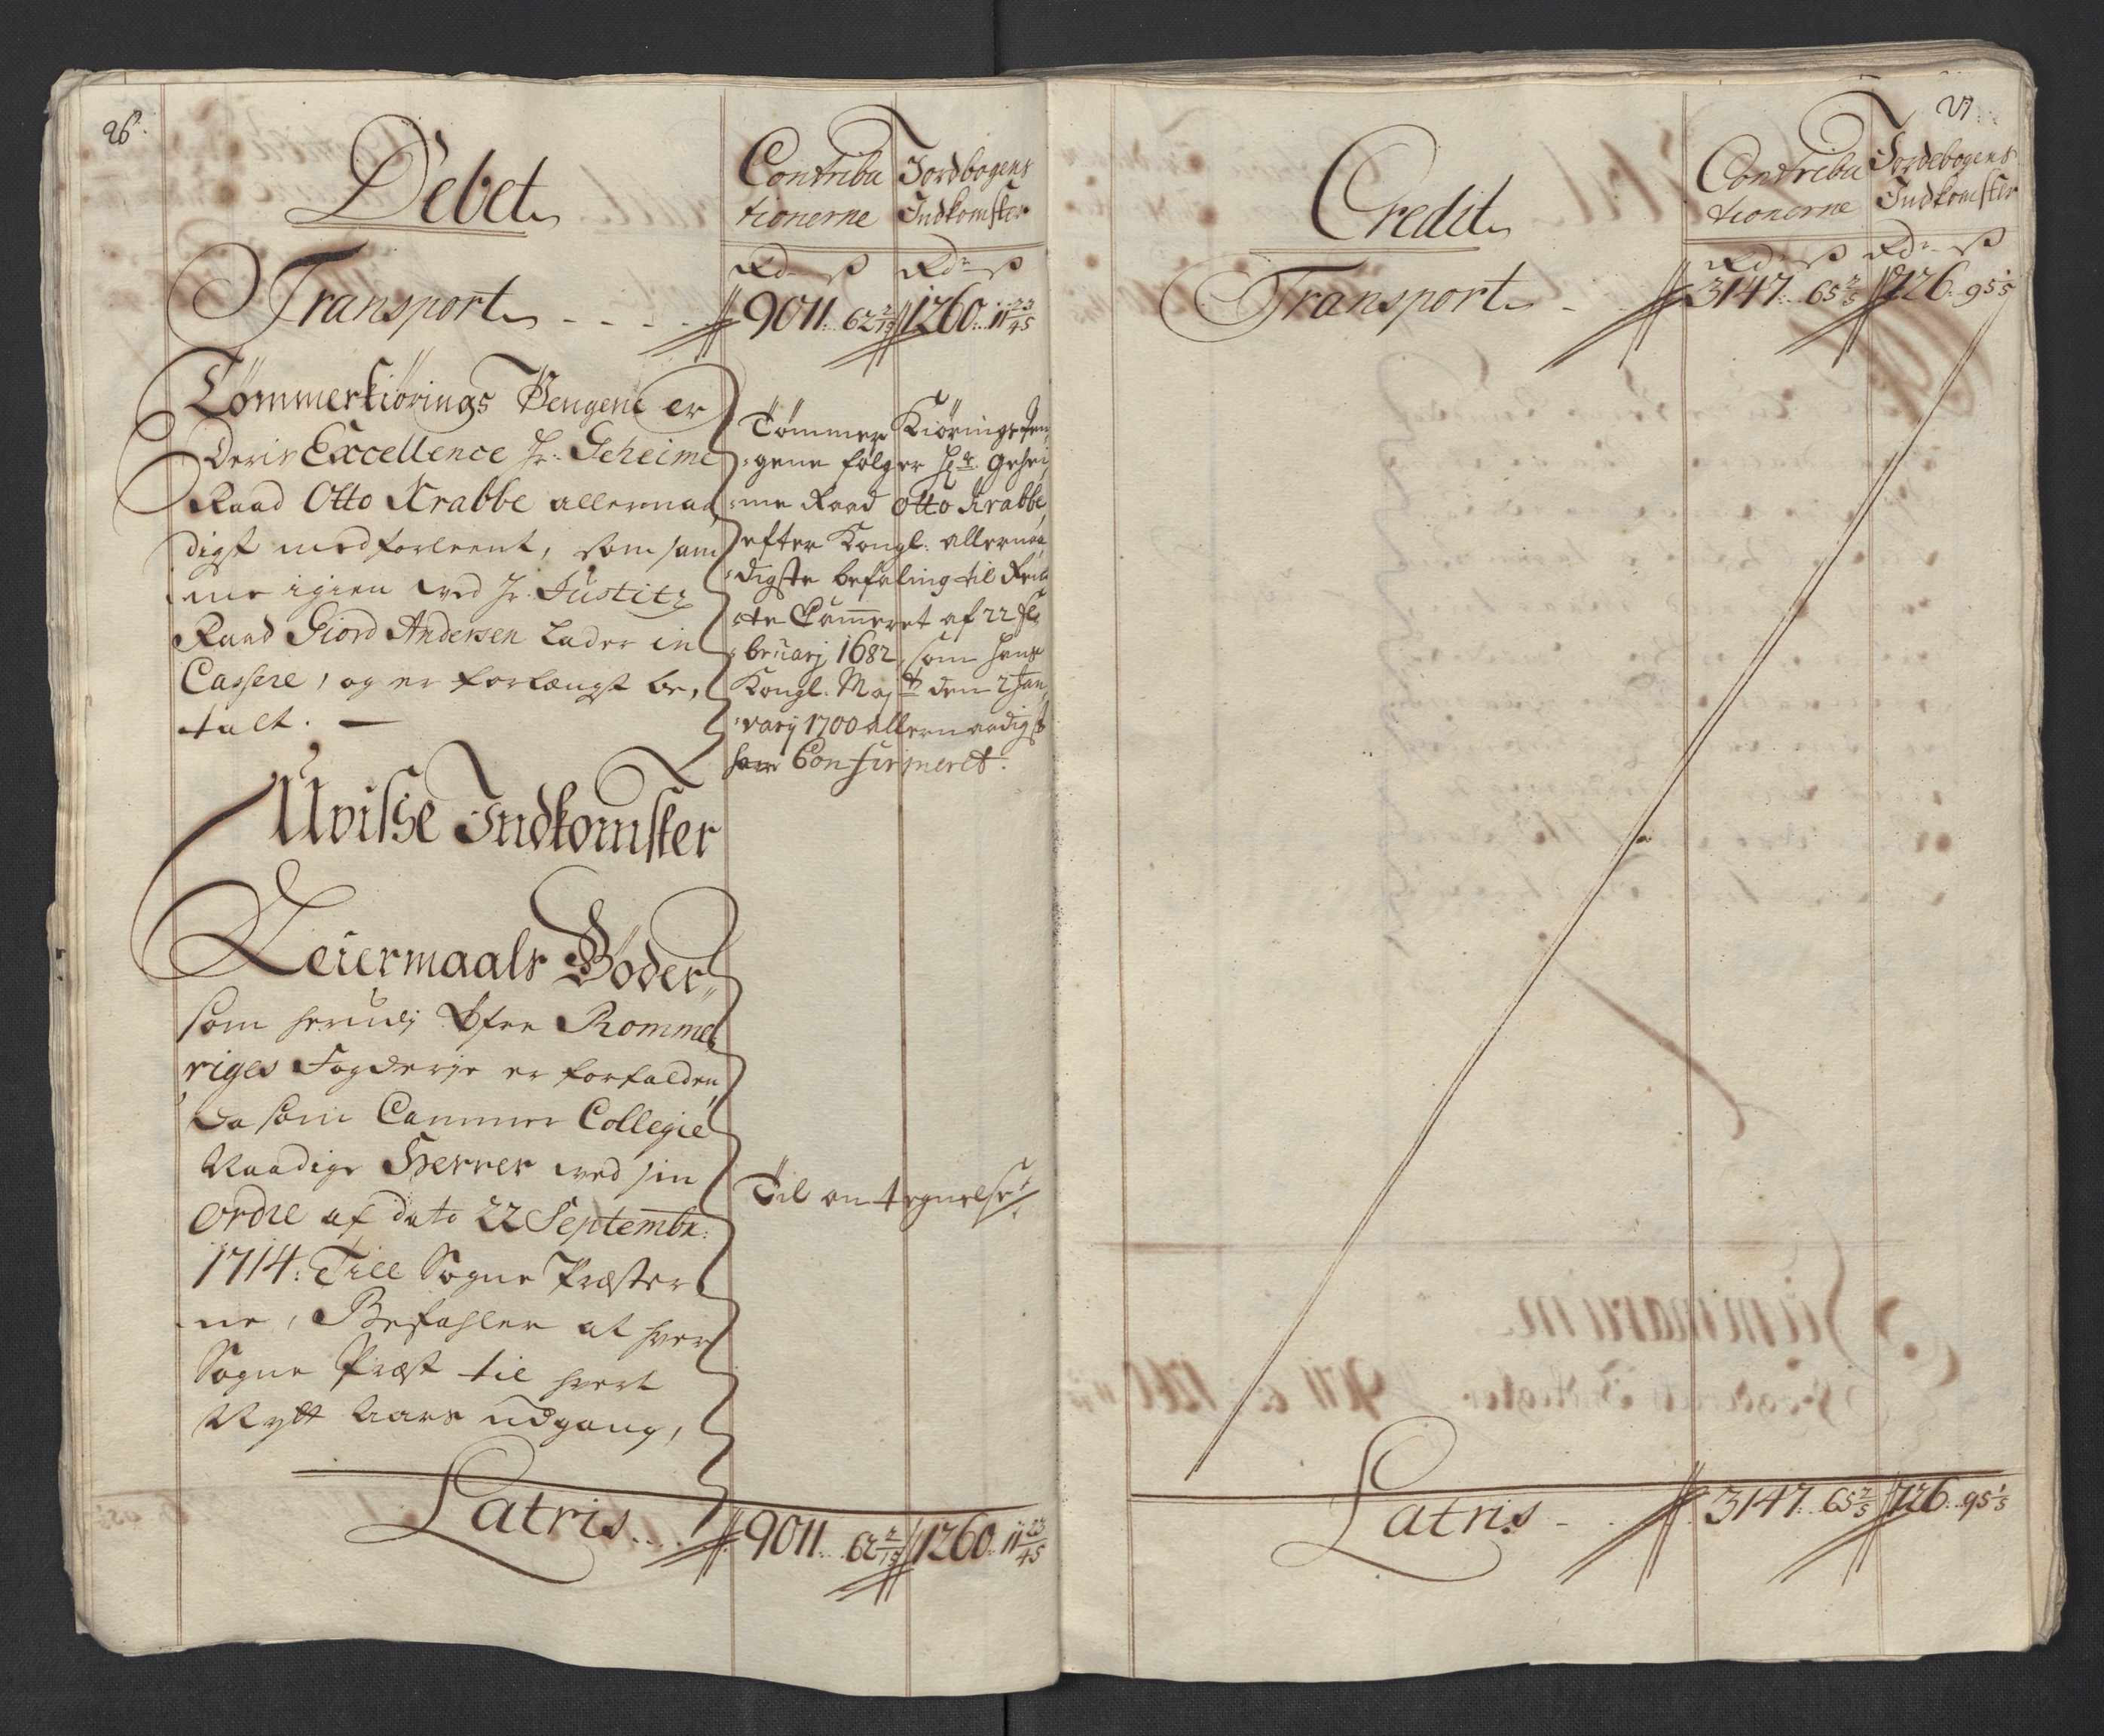 26.
Debet
Contribu
tionerne
Jordbogens
Indkomster
Rdr ß Rdr ß
Transport - - - - 9011: 62 2/15 1260: 11 23/45
Tømmerkiørings Pengene er
Deris Excellence Hr. Geheime
Raad Otto Krabbe allernaa
digst medforleent, som sam
me igien ved Hr. Justitz
Raad Giord Andersen Lader in
Cassere, og er forlængst be,
talt. —
Tømmer Kiørings Pen
gene følger Hr. Gehei
me Raad Otto Krabbe,
efter Kongl. allernaa
digste befaling til Ren
te Cammeret af 22 Fe
bruarj 1682, som hans
Kongl. Mayt den 2 Jan
varij 1700 allernaadigst
har Confirmeret.
Uvisse Indkomster
Leiermaals Bøder
som herudj Øfre Romme
riges Fogderje er forfalden,
Da som Cammer Collegie
Naadige Herrer ved sin
Ordre af dato 22 Septembr:
1714. Till Sogne Præster
ne, Befahler at hver
Sogne Præst til hvert
Nytt Aars udgang,
Til antegnelse
Latris . . . 9011: 62 2/15 1260: 11 23/45
27.
Credit
Contribu
tionerne
Jordebogens
Indkomster
Rdr ß Rdr ß
Transport - 3147: 65 2/5 726: 95 1/5
Latris - . 3147: 65 2/5 726: 95 1/5